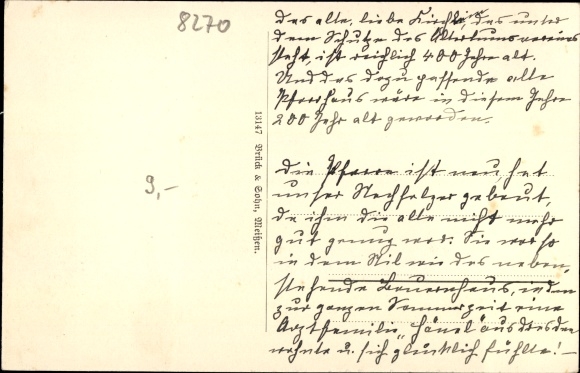 8270
das alte, liebe Kirchlein, das unter
dem Schutze des Altertumsvereins
steht, ist reichlich 400 Jahre alt.
Und das dazu passende alte
Pfarrhaus wäre in diesem Jahre
200 Jahr alt geworden.
Die Pfarre ist neu, hat
unser Nachfolger gebaut,
da ihm die alte nicht mehr
gut genug war. Sie war so
in dem Stil wie das neben-
stehende Bauernhaus, in dem
zur ganzen Sommerzeit eine
Arztfamilie "Hänel" aus Dresden
wohnte u. sich glücklich fühlte! –
9,-
13147 Brück & Sohn, Meißen.